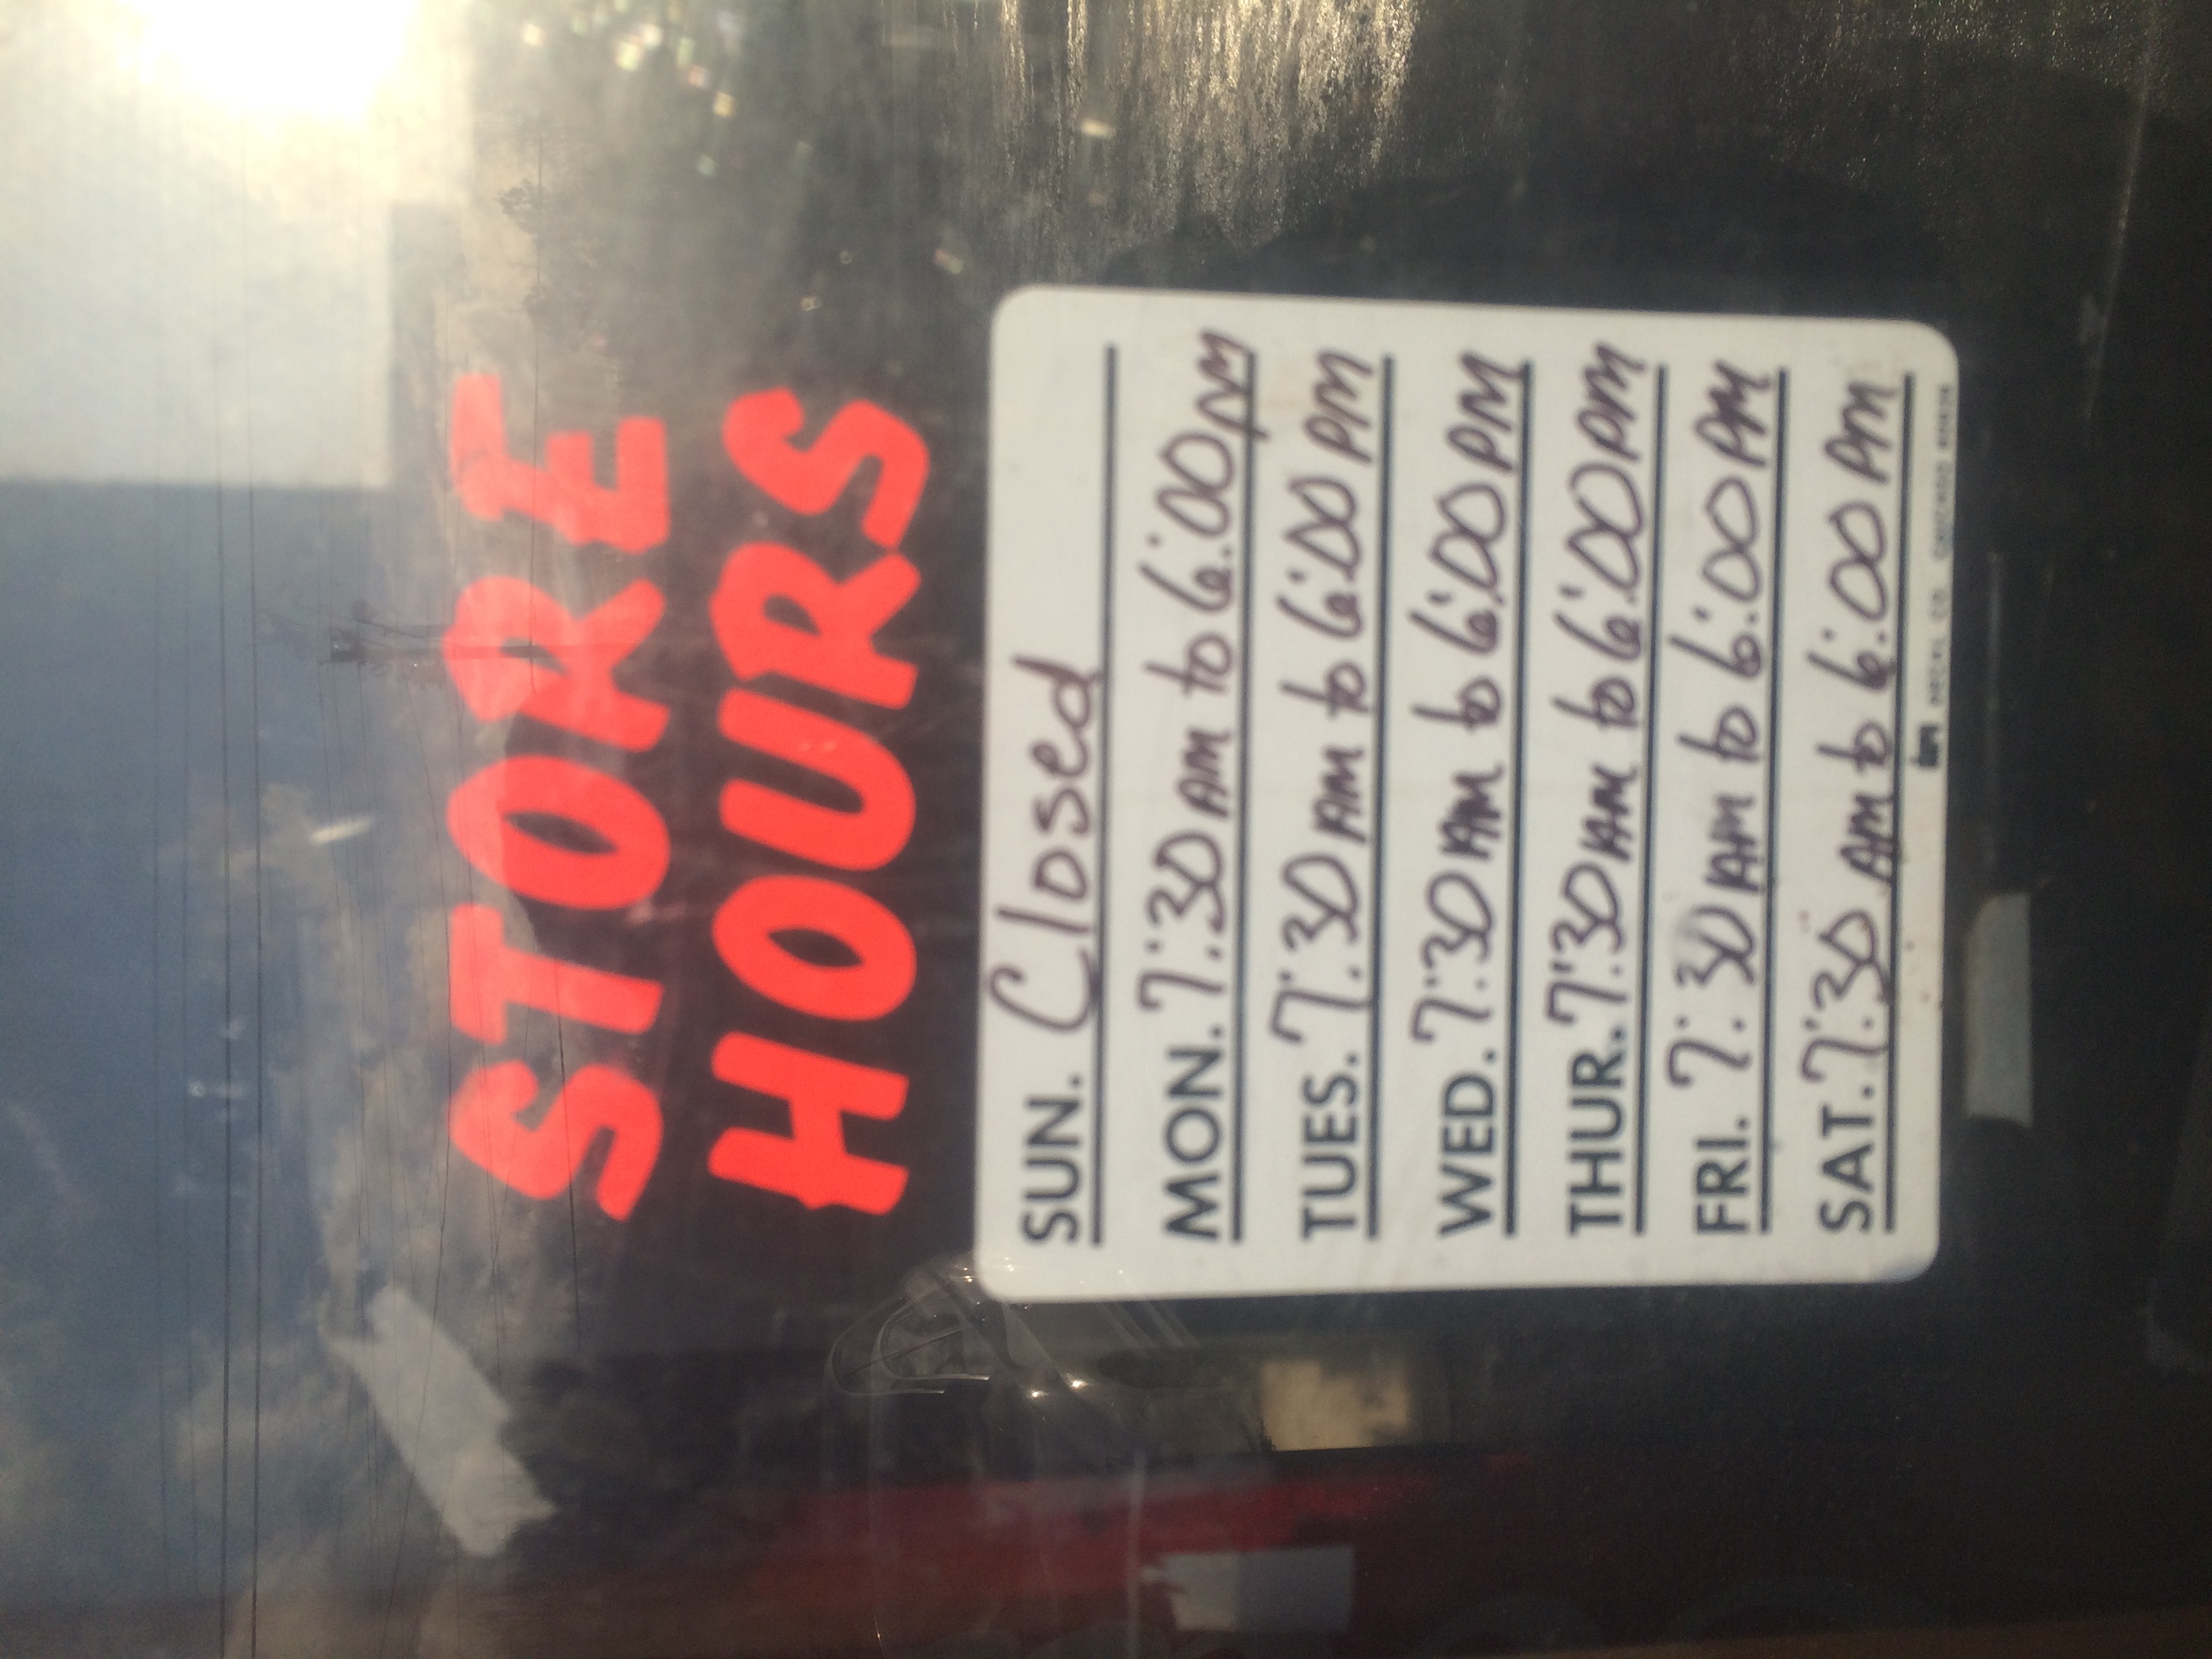 STORE
HOURS
SUN. Closed
MON. 7:30 AM to 6:00 PM
TUES. 7:30 AM to 6:00 PM
WED. 7:30 AM to 6:00 PM
THUR. 7:30 AM to 6:00 PM
FRI. 7:30 AM to 6:00 PM
SAT. 7:30 AM to 6:00 PM
DECAL CO. CHICAGO